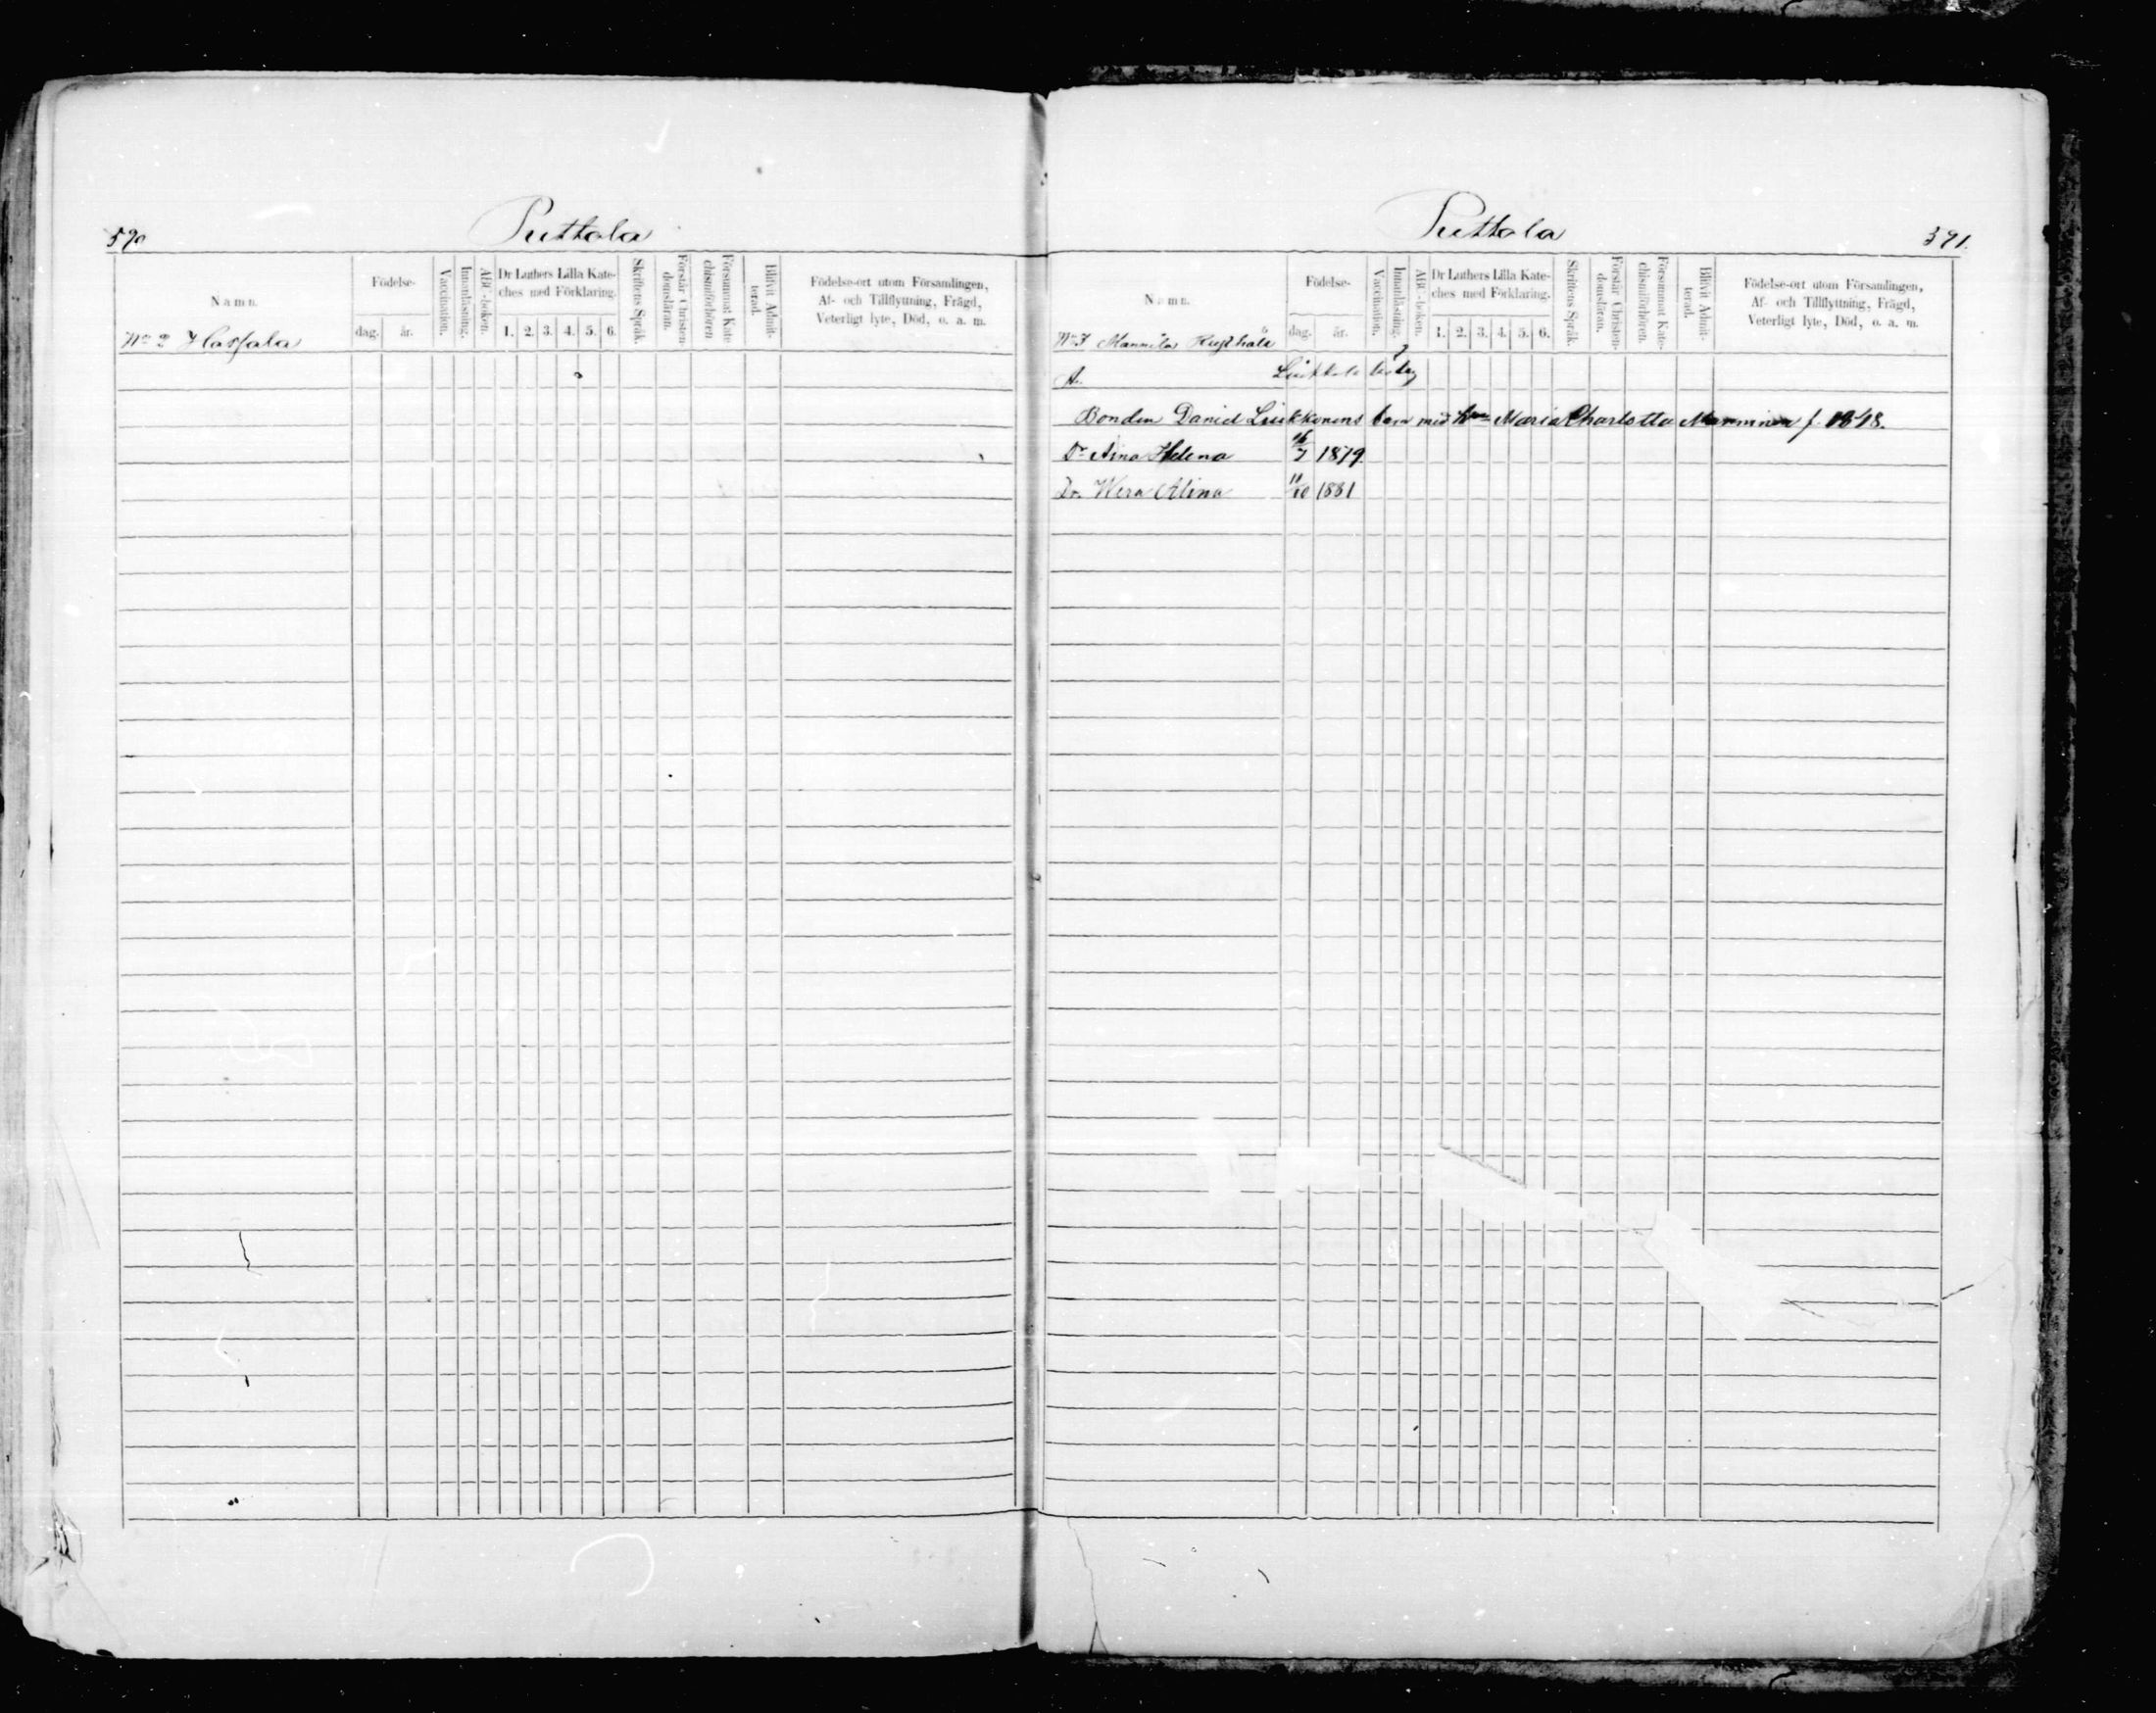 590
Puttola
Namn.
Födelse-
dag.
år.
Vaccination.
Innanläsning.
ABC-boken.
Dr Luthers Lilla Kate-
ches med Förklaring.
1. 2. 3. 4. 5. 6.
Skriftens Språk.
Förstår Christen-
domsläran.
Försummat Kate
chismiförhören
Blifvit Admit-
terad.
Födelse-ort utom Församlingen,
Af- och Tillflyttning, Frägd,
Veterligt lyte, Död, o. a. m.
No 2
Puttola
391.
Namn.
Födelse-
dag.
år.
Vaccination.
Innanläsning.
ABC-boken.
Dr Luthers Lilla Kate-
ches med Förklaring.
1. 2. 3. 4. 5. 6.
Skriftens Språk.
Förstår Christen-
domsläran.
Försummat Kate-
chismiförhören.
Blifvit Admit-
terad.
Födelse-ort utom Församlingen,
Af- och Tillflyttning, Frägd,
Veterligt lyte, Död, o. a. m.
Mannila Rusthåll
A.
Bonden Daniel Liukkonens barn med hu Maria Charlotta Manninen f. 1848.
Dr Aina Helena 16/7 1879.
Dr. Wera Alina 11/10 1881